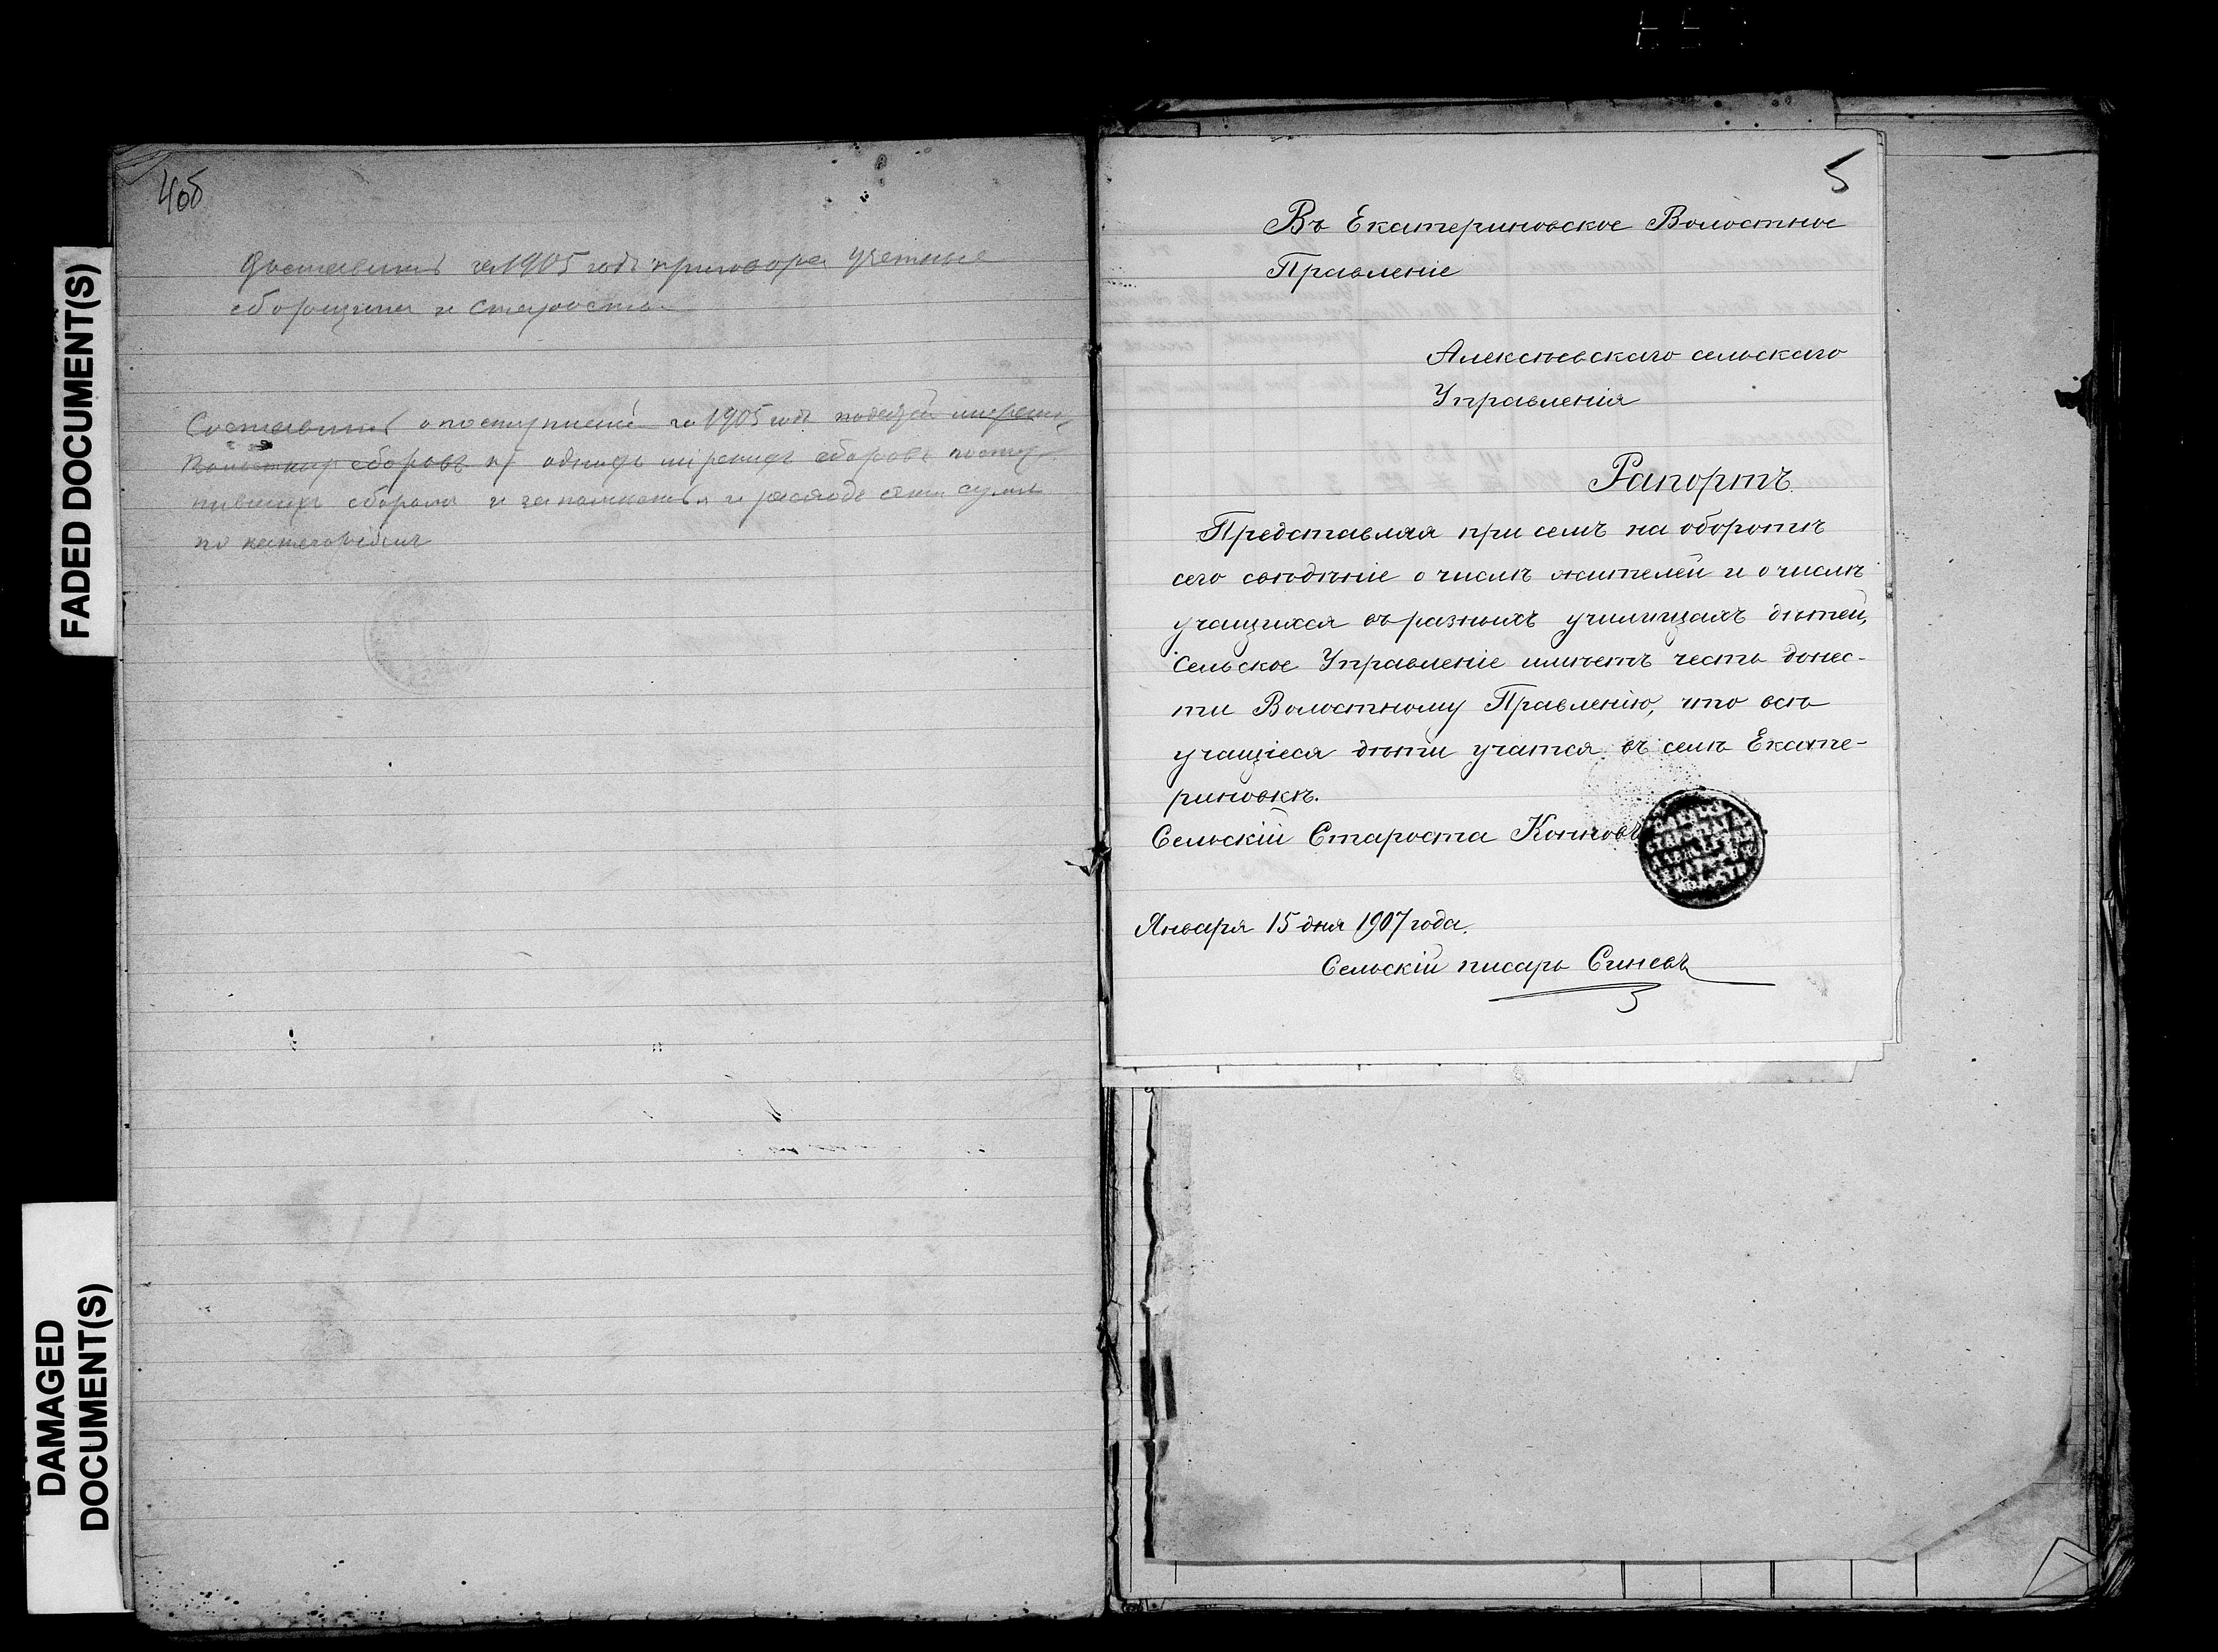 FADED DOCUMENT(S)
DAMAGED
DOCUMENT(S)
4об
Доставить за 1905 годъ приговора учетные
сборщика и старосты
Составить о поступлении за 1905 годъ
сборовъ мірскихъ сборовъ
сборовъ и расходъ сумъ
по категоріямъ
5
Въ Екатериновское Волостное
Правленіе
Алексѣевскаго сельскаго
Управленія
Рапортъ.
Представляя при семъ на оборотѣ
сего свѣдѣніе о числѣ жителей и о числѣ
учащихся въ разныхъ училищахъ дѣтей,
Сельское Управленіе имѣетъ честь донес-
ти Волостному Правленію, что всѣ
учащіеся дѣти учатся въ селѣ Екате-
риновкѣ.
Сельскій Староста
Января 15 дня 1907 года.
Сельскій писарь Синевъ